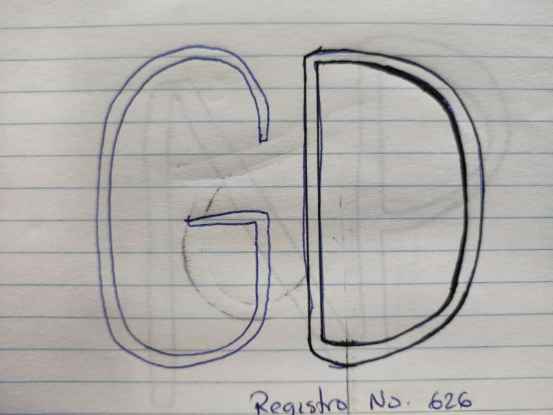 GD
Registro No. 626